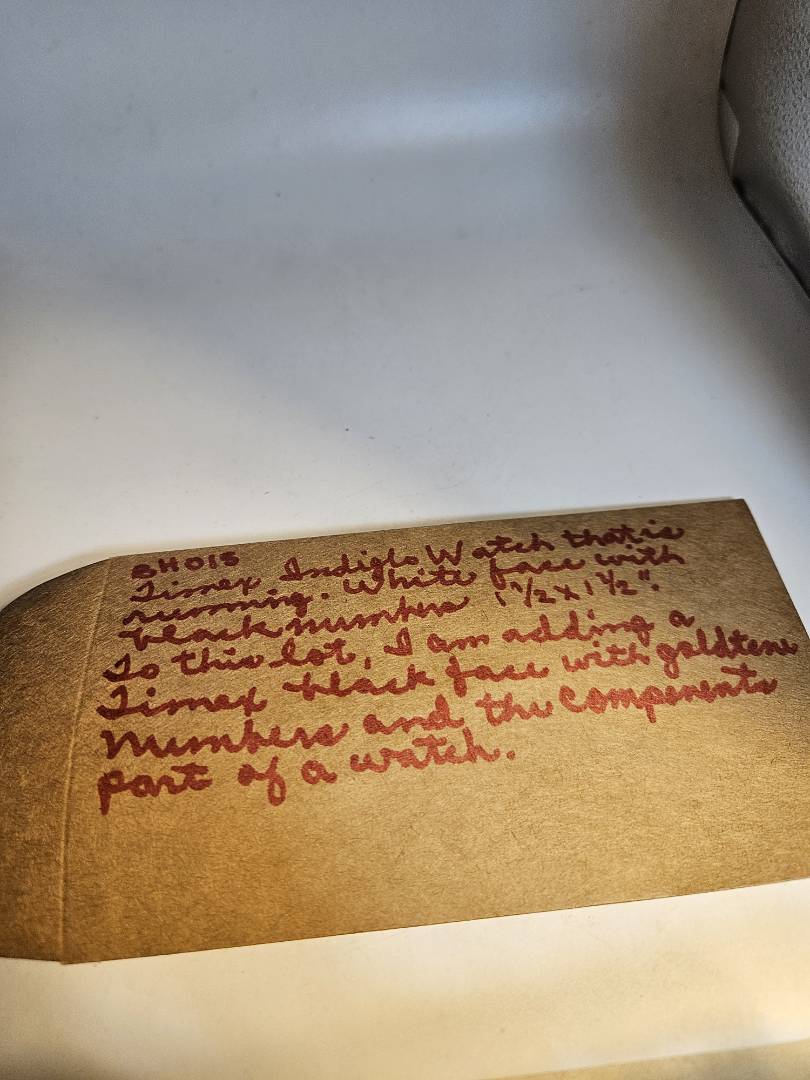 SH015
Timex Indiglo Watch that is
running. White face with
black numbers 1 1/2 x 1 1/2".
To this lot, I am adding a
Timex black face with goldtone
Numbers and the components
part of a watch.